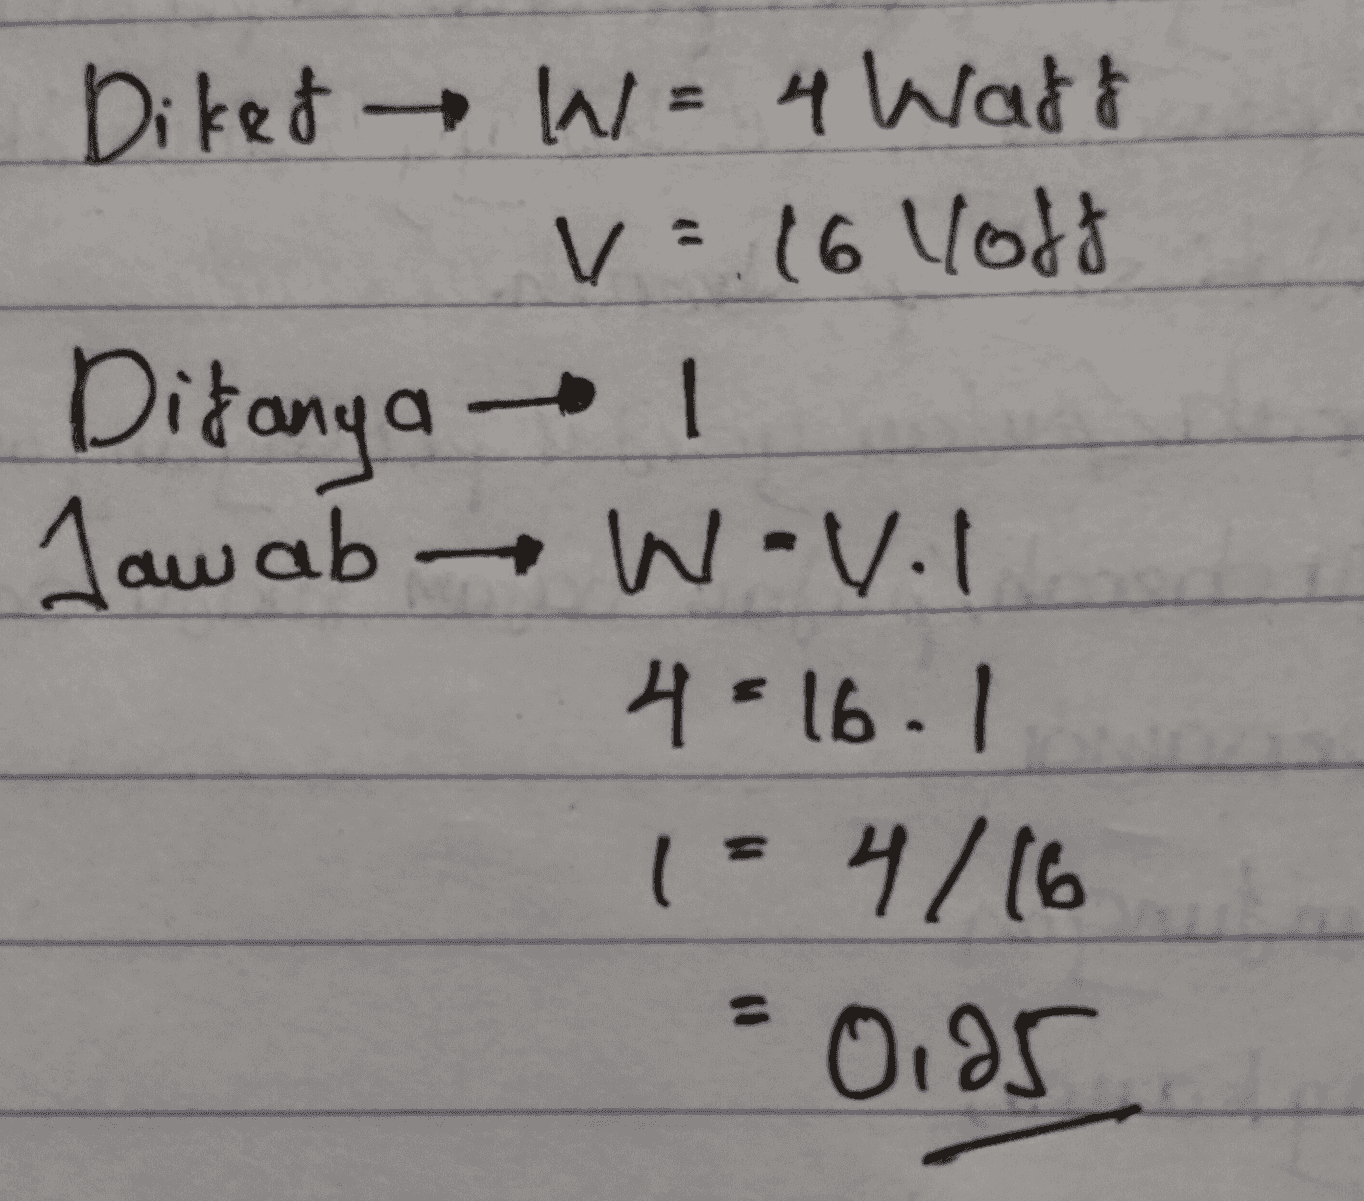 Diket → W = 4 Watt
V = 16 Volt
Ditanya → I
Jawab → W = V.I
4 = 16 . I
I = 4/16
= 0,25